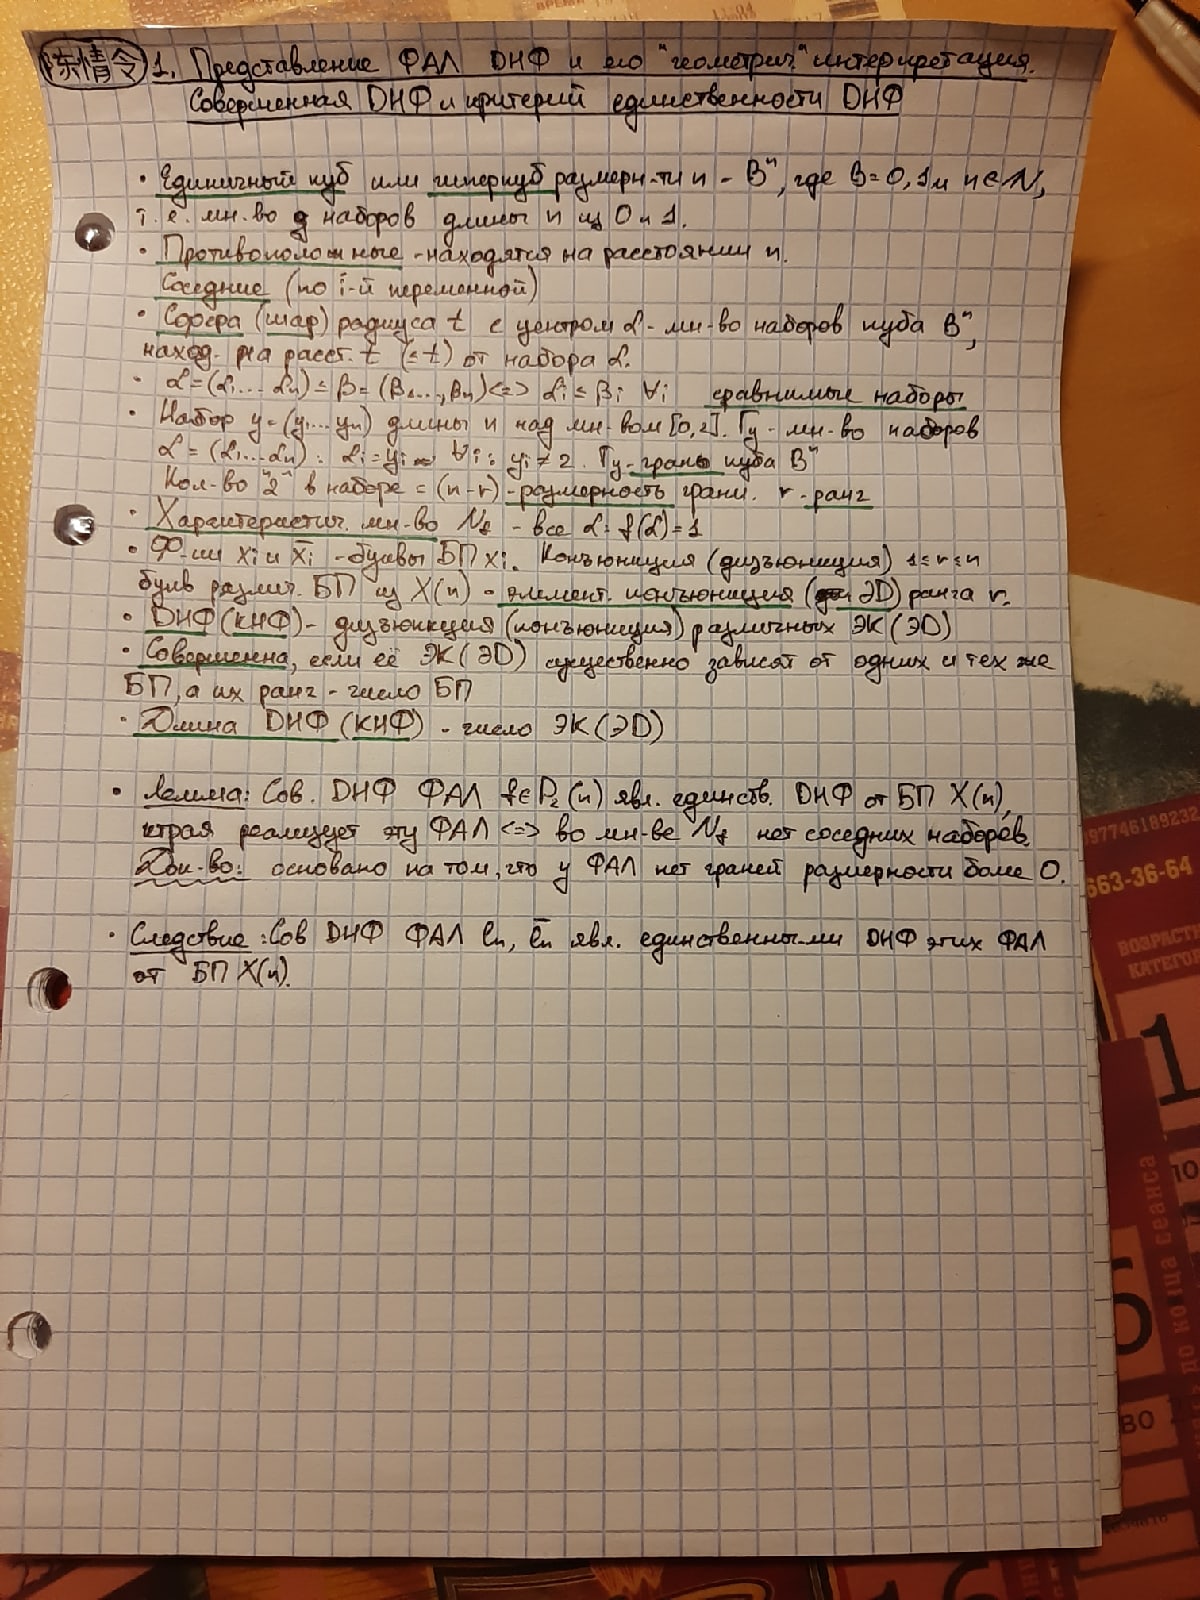 陈情令 1. Представление ФАЛ ДНФ и его "геометрич." интерпретация.
Совершенная ДНФ и критерий единственности ДНФ
• Единичный куб или гиперкуб размерн-ти n - Bⁿ, где B = 0, 1 и n ∈ N,
т.е. мн-во наборов длины n из 0 и 1.
• Противоположные - находятся на расстоянии n.
Соседние (по i-й переменной)
• Сфера (шар) радиуса t с центром α - мн-во наборов куба Bⁿ,
наход. на расст. t (≤t) от набора α.
• α=(α₁...αn) ≤ β=(β₁...,βn) <=> αi ≤ βi ∀i сравнимые наборы
• Набор γ=(γ₁...γn) длины n над мн-вом [0,2]. Гγ - мн-во наборов
α = (α₁...αn) : αi = γi ∀i : γi ≠ 2. Гγ - грань куба Bⁿ
Кол-во "2" в наборе = (n-r) - размерность грани. r - ранг
• Характеристич. мн-во Nf - все α: f(α)=1
• Ф-ии xi и x̄i - буквы БП xi. Конъюнкция (дизъюнкция) 1≤r≤n
букв различ. БП из X(n) - элемент. конъюнкция (ЭД) ранга r.
• ДНФ (КНФ) - дизъюнкция (конъюнкция) различных ЭК (ЭД)
• Совершенна, если её ЭК (ЭД) существенно зависят от одних и тех же
БП, а их ранг - число БП
• Длина ДНФ (КНФ) - число ЭК (ЭД)
• Лемма: Сов. ДНФ ФАЛ f∈P₂(n) явл. единств. ДНФ от БП X(n),
ктрая реализует эту ФАЛ <=> во мн-ве Nf нет соседних наборов.
Док-во: основано на том, что у ФАЛ нет граней размерности более 0.
• Следствие: Сов ДНФ ФАЛ ln, l̄n явл. единственными ДНФ этих ФАЛ
от БП X(n).
663-36-64
ВОЗРАСТН
КАТЕГОР
1
до конца сеанса